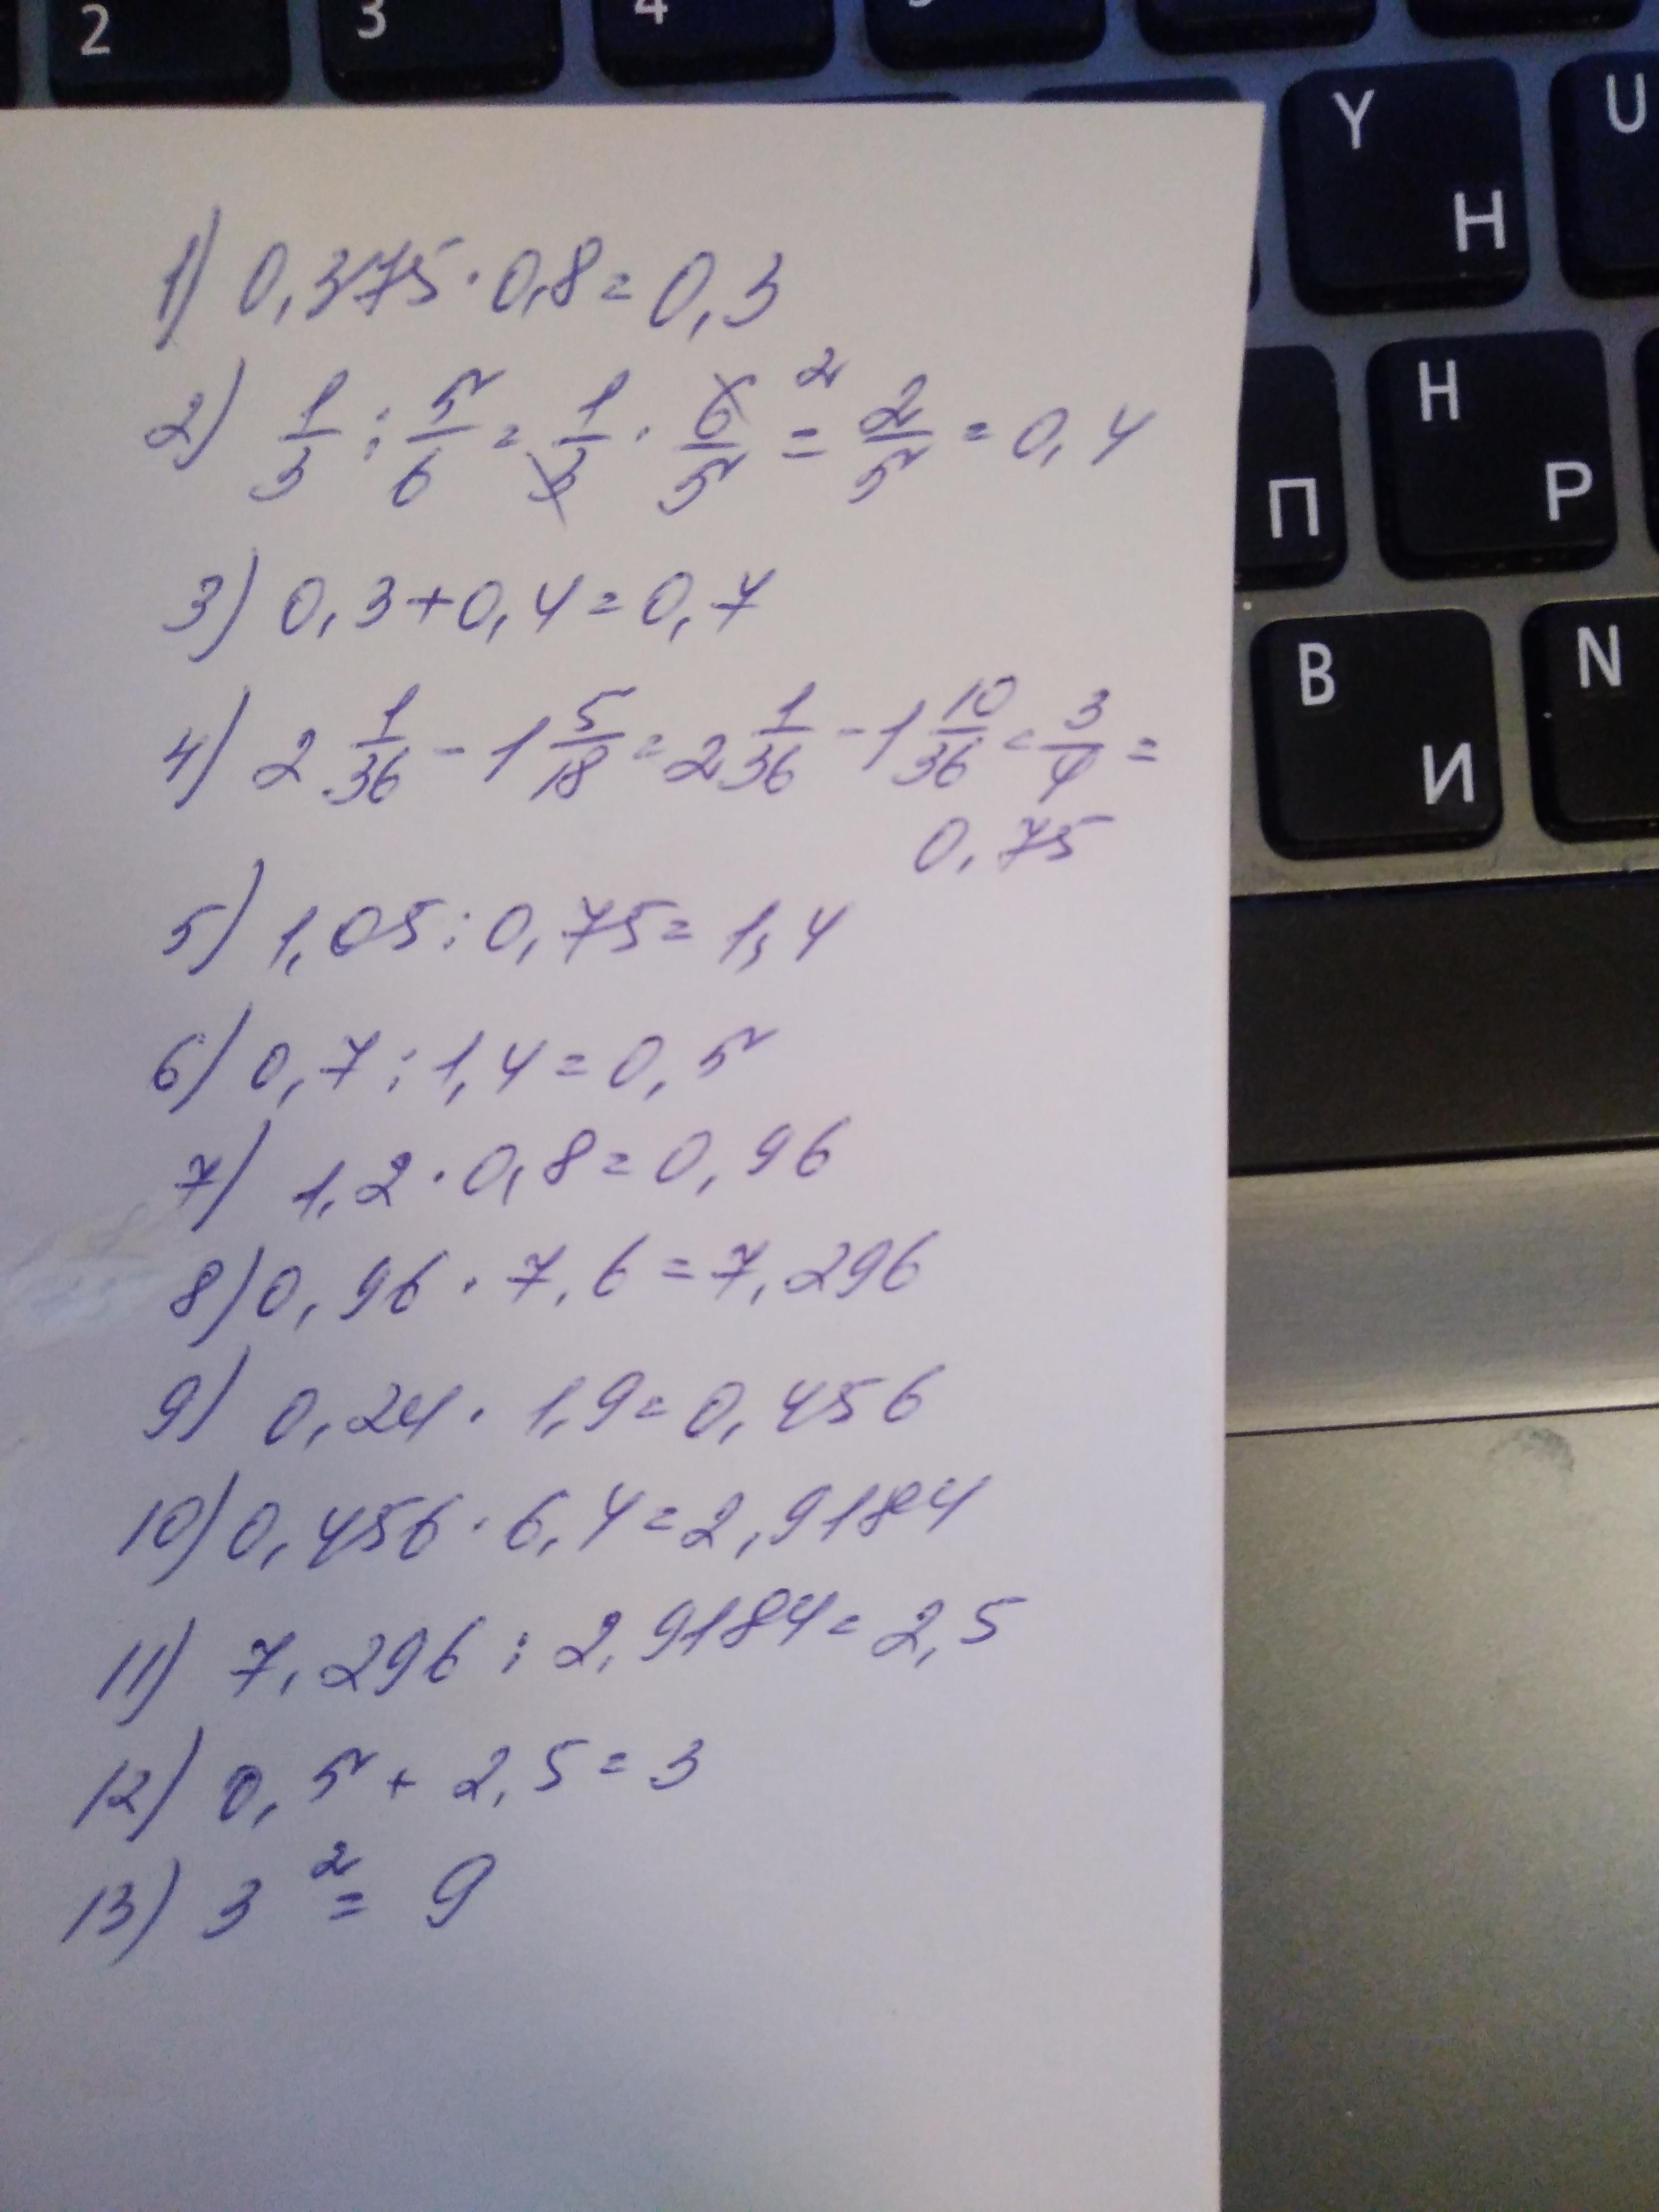 2 3 4
Y H U
1) 0,375 · 0,8 = 0,3
2) 1/3 : 5/6 = 1/3 · 6/5 ² = 2/5 = 0,4
П H Р
3) 0,3 + 0,4 = 0,7
B И N
4) 2 1/36 - 1 5/18 = 2 1/36 - 1 10/36 = 3/4 =
0,75
5) 1,05 : 0,75 = 1,4
6) 0,7 : 1,4 = 0,5
7) 1,2 · 0,8 = 0,96
8) 0,96 · 7,6 = 7,296
9) 0,24 · 1,9 = 0,456
10) 0,456 · 6,4 = 2,9184
11) 7,296 : 2,9184 = 2,5
12) 0,5 + 2,5 = 3
13) 3² = 9